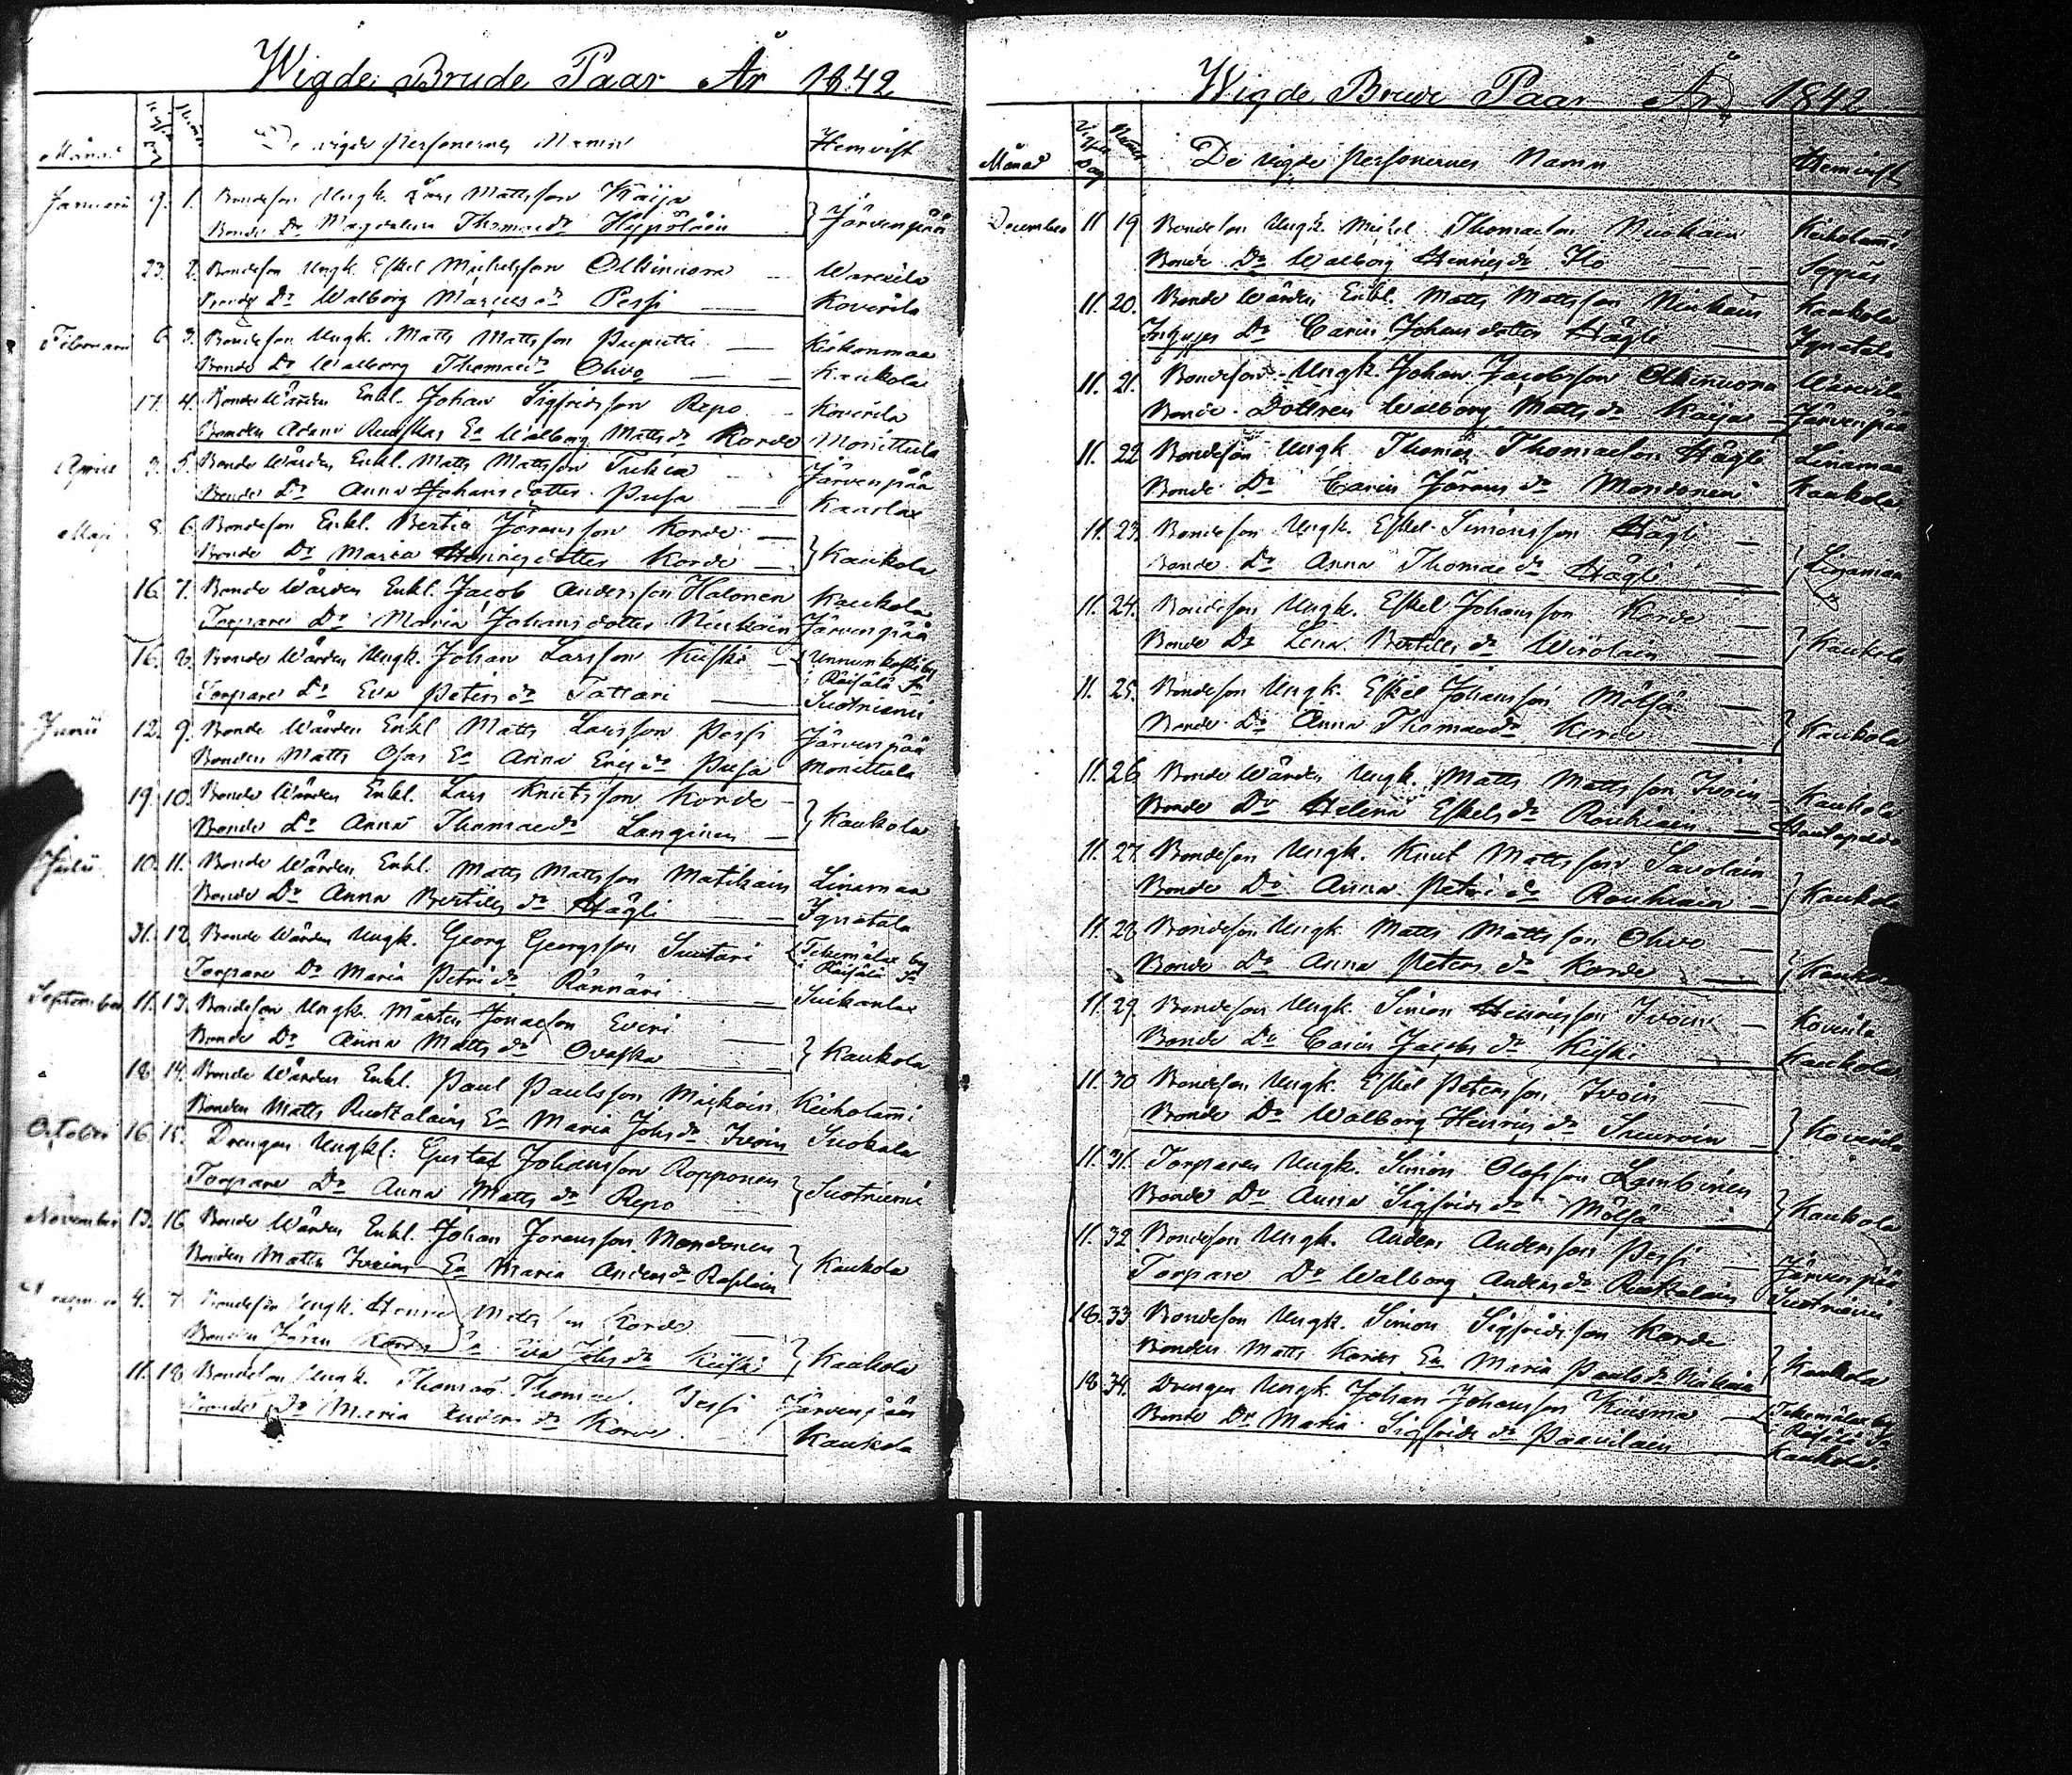 Wigde Brude Paar År 1842
Månad De vigde Personernes Namn Hemvist
Januarii 9. 1. Bondeson Ungk. Lars Mattsson Kaija
Bonde Dr Magdalena Thomaedr Hyppöläin } Järvenpää
23. 2. Bondeson Ungk. Eskel Michelsson Olkinuora — Warevila
Bonde Dr Walborg Marcusdr Pessi — Koverila
Februarii 6. 3. Bondeson Ungk. Matts Mattsson Puputti — Kiskonmaa
Bonde Dr Walborg Thomaedr Ohvo — Kaukola
17. 4. Bonde Wärden Enkl. Johan Sigfridsson Repo — Koverila
Bonden Adam Ea Walborg Mattsdr Korde Monittula
April 3. 5. Bonde Wärden Enkl. Matts Mattsson Tukia Järvenpää
Bonde Dr Anna Johansdotter Pusa — Kaarlax
Maji 8. 6. Bondeson Enkl. Bertil Jöransson Korde —
Bonde Dr Maria Henricsdotter Korde — } Kaukola
16. 7. Bonde Wärden Enkl. Jacob Andersson Halonen Kaukola
Torpare Dr Maria Johansdotter Niukain Järvenpää
16. 8. Bonde Wärden Ungk. Johan Larsson Kiiski — { Unnunkoski by i Räisälä Sn
Torpare Dr Eva Petersdr Tattari — Suotniemi
Junii 12. 9. Bonde Wärden Enkl Matts Larsson Pessi Järvenpää
Bonden Matts Ea Anna Ericsdr Pusa Monittula
19. 10. Bonde Wärden Enkl. Lars Knutsson Korde —
Bonde Dr Anna Thomaedr Langinen — } Kaukola
Julii 10. 11. Bonde Wärden Enkl. Matts Mattsson Matikain Linamaa
Bonde Dr Anna Bertilsdr Hägli — Ignatala
31. 12. Bonde Wärden Ungk. Georg Georgsson Suutari { Tikenmälax by i Räisälä Sn
Torpare Dr Maria Petridr Rännäri — Siikanlax
September 11. 13. Bondeson Ungk. Mårten Jonaeson Everi —
Bonde Dr Anna Mattsdr Ovaska — } Kaukola
18. 14. Bonde Wärden Enkl. Paul Paulsson Miikoin Keiholami
Bonden Matts Ruotzalains Ea Maria Johsdr Ivoin Suokala
October 16. 15. Drengen Ungkl: Gustaf Johansson Ropponen
Torpare Dr Anna Mattsdr Repo } Suotniemi
November 13. 16. Bonde Wärden Enkl. Johan Joransson Mondonen
Bonden Matts Ivoins Ea Maria Andersdr } Kaukola
4. 7 Bondeson Ungk. Henric Mattsson Korde —
Bonden Jöran Kordes Johsdr Kiiski } Kaukola
11. 18 Bondeson Ungk. Thomas Thomae Pessi Järvenpää
Bonde Dr Maria Andersdr Korde Kaukola
Wigde Brude Paar År 1842
Månad Vigde Dag Numer De vigde Personernes Namn Hemvist
December 11 19 Bondeson Ungk. Michel Thomaeson Miikoin Keiholami
Bonde Dr Walborg Henricsdr Ilo — Seppäs
11. 20. Bonde Wärden Enkl. Matts Mattsson Niukain Kaukola
Dr Carin Johansdotter Hägli — Ignatala
11. 21. Bondeson Ungk. Johan Jacobsson Olkinuora Warevila
Bonde Dottren Walborg Mattsdr Kaija — Järvenpää
11. 22 Bondeson Ungk Thomas Thomaeson Hägli Linamaa
Bonde Dr Carin Jöransdr Mondonen Kaukola
11. 23. Bondeson Ungk. Eskel Simonsson Hägli —
Bonde Dr Anna Thomaedr Hägli — } Linamaa
11. 24. Bondeson Ungk. Eskel Johansson Korde —
Bonde Dr Lena Bertilsdr Wirolain — } Kaukola
11. 25. Bondeson Ungk. Eskel Johansson Mölsä —
Bonde Dr Anna Thomaedr Korde — } Kaukola
11. 26 Bonde Wärden Ungk. Matts Mattsson Ivoin — Kaukola
Bonde Dr Helena Eskelsdr Rouhiain —
11. 27. Bondeson Ungk. Knut Mattsson Savolain
Bonde Dr Anna Petridr Rouhiain — } Kaukola
11. 28 Bondeson Ungk. Matts Mattsson Ohvo —
Bonde Dr Anna Petersdr Korde — } Kaukola
11. 29. Bondeson Ungk. Simon Henricsson Ivoin — Koverila
Bonde Dr Carin Jacobsdr Kiiski — Kaukola
11. 30 Bondeson Ungk. Eskel Petersson Ivoin —
Bonde Dr Walborg Henricsdr Suuroin — } Koverila
11. 31. Torparen Ungk. Simon Olofsson Lambinen
Bonde Dr Anna Sigfridsdr Mölsä — } Kaukola
11. 32. Bondeson Ungk. Anders Andersson Pessi — Järvenpää
Torpare Dr Walborg Andersdr Ruotzalain Suotniemi
18. 33 Bondeson Ungk. Simon Sigfridsson Korde
Bonden Matts Kordes Ea Maria Paulsdr Niukain } Kaukola
18. 34. Drengen Ungk. Johan Johansson Kuisma — { Tikenmälax by i Räisälä Sn
Bonde Dr Maria Sigfridsdr Paavilain — Kaukola.